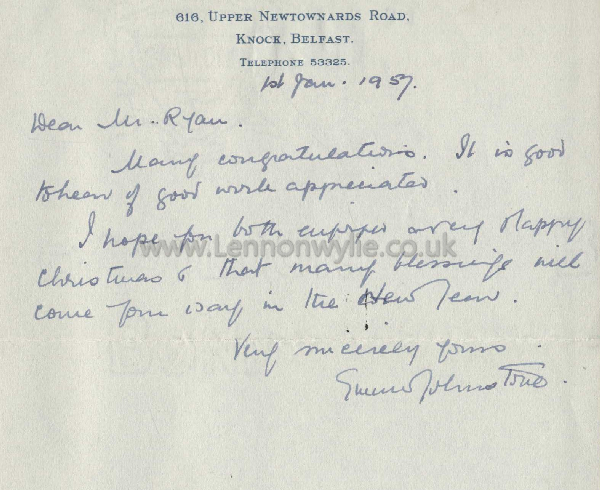 616, Upper Newtownards Road,
Knock, Belfast.
Telephone 53325.
1st Jan. 1957.
Dear Mr. Ryan.
Many congratulations. It is good
to hear of good work appreciated.
I hope you both enjoyed a very Happy
www.Lennonwylie.co.uk
Christmas & that many blessings will
come your way in the New Year.
Very sincerely yours.
Johnstone.